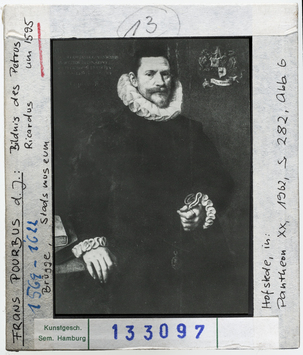 13
FRANS POURBUS d. J.:
1569-1622
Bildnis des Petrus
Ricardus um 1595
Brügge, Stadsmuseum
Hofstede, in:
Pantheon XX, 1962, S 282, Abb 6
Kunstgesch.
Sem. Hamburg
133097